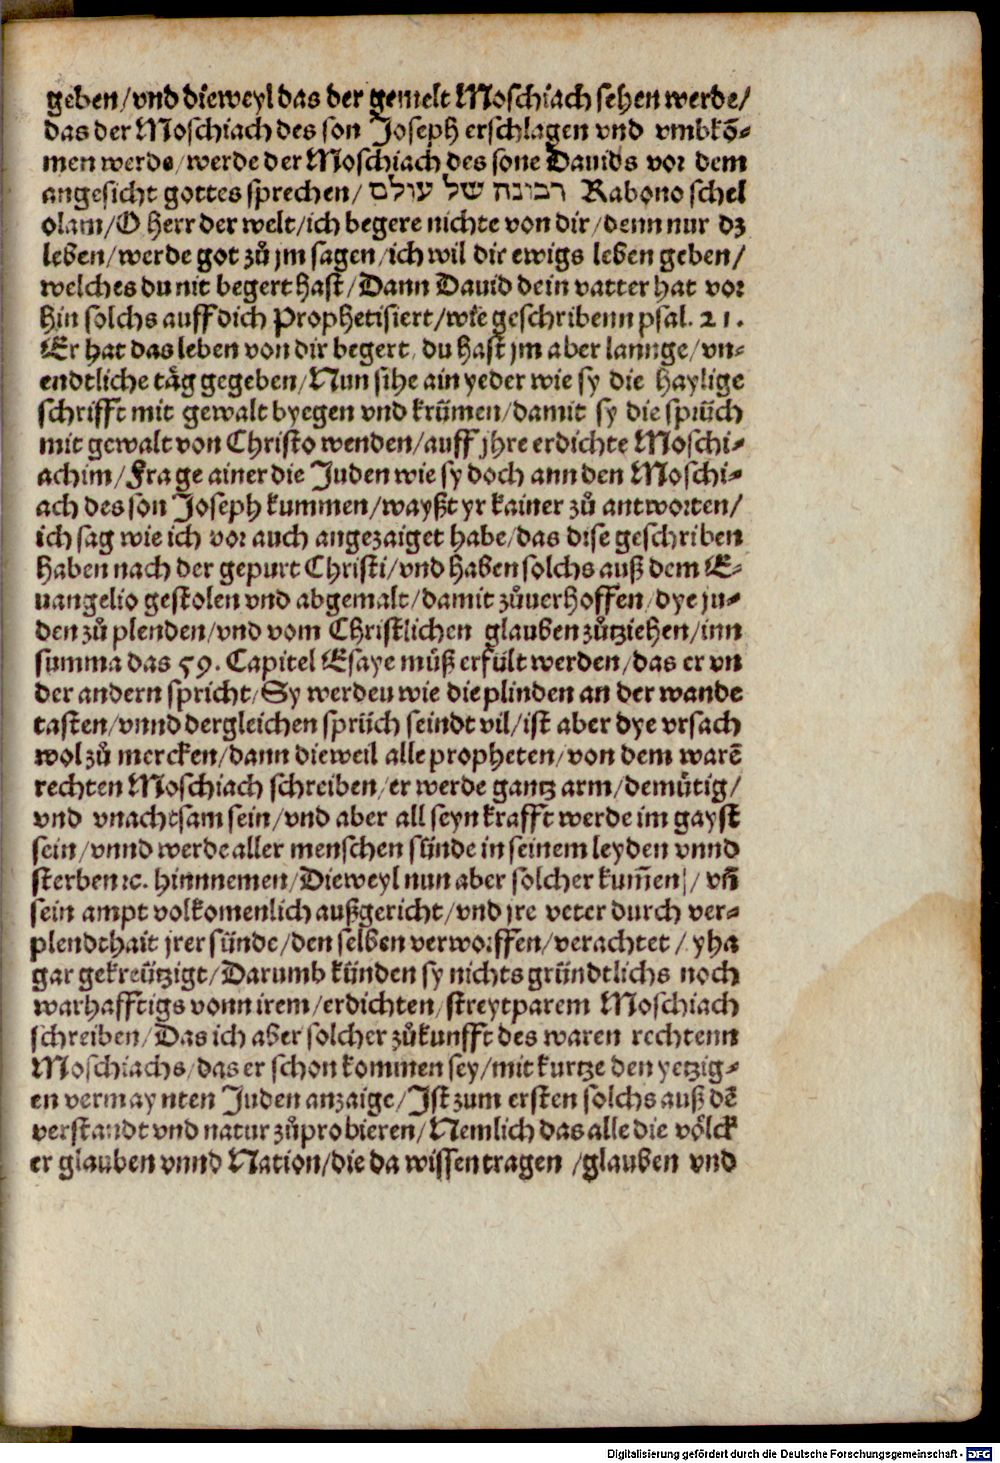 geben/vnd dieweyl das der gemelt Moschiach sehen werde/
das der Moschiach des son Joseph erschlagen vnd vmbkō-
men werde/werde der Moschiach des sone Dauids vor dem
angesicht gottes sprechen/ רבונה של עולם Rabono schel
olam/O Herr der welt/ich begere nichte von dir/denn nur dz
leben/werde got zů jm sagen/ich wil dir ewigs leben geben/
welches du nit begert hast/Dann Dauid dein vatter hat vor
hin solchs auff dich Prophetisiert/wie geschribenn psal. 21.
Er hat das leben von dir begert, du hast jm aber lannge/vn-
endtliche täg gegeben/Nun sihe ain yeder wie sy die haylige
schrifft mit gewalt byegen vnd krümen/damit sy die sprüch
mit gewalt von Christo wenden/auff jhre erdichte Moschi-
achim/Frage ainer die Juden wie sy doch ann den Moschi-
ach des son Joseph kummen/wayßt yr kainer zů antworten/
ich sag wie ich vor auch angezaiget habe/das dise geschriben
haben nach der gepurt Christi/vnd haben solchs auß dem E-
uangelio gestolen vnd abgemalt/damit zůuerhoffen/dye ju-
den zů plenden/vnd vom Christlichen glauben zůtziehen/inn
summa das 59. Capitel Esaye můß erfült werden/das er vn
der andern spricht/Sy werden wie die plinden an der wande
tasten/vnnd dergleichen sprüch seindt vil/ist aber dye vrsach
wol zů mercken/dann dieweil alle propheten/von dem warē
rechten Moschiach schreiben/er werde gantz arm/demütig/
vnd vnachtsam sein/vnd aber all seyn krafft werde im gayst
sein/vnnd werde aller menschen sünde in seinem leyden vnnd
sterben ꝛc. hinnnemen/Dieweyl nun aber solcher kum̄en/ vn̄
sein ampt volkomenlich außgericht/vnd jre veter durch ver-
plendthait jrer sünde/den selben verworffen/verachtet/ yha
gar gekreützigt/Darumb künden sy nichts gründtlichs noch
warhafftigs vonn irem/erdichten/streytparem Moschiach
schreiben/Das ich aber solcher zůkunfft des waren rechtenn
Moschiachs/das er schon kommen sey/mit kurtze den yetzig-
en vermaynten Juden anzaige/Jst zum ersten solchs auß dē
verstandt vnd natur zůprobieren/Nemlich das alle die völck
er glauben vnnd Nation/die da wissen tragen /glauben vnd
Digitalisierung gefördert durch die Deutsche Forschungsgemeinschaft - DFG